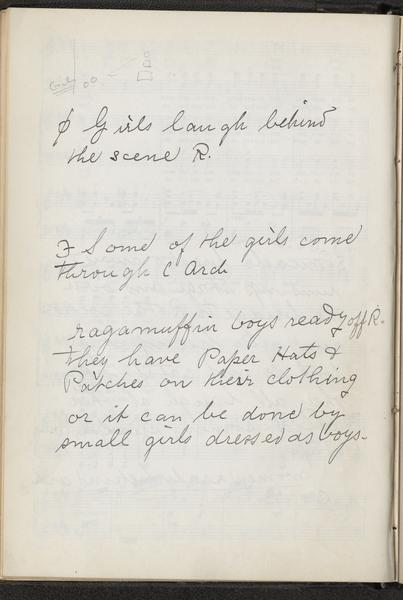 φ Girls laugh behind
the scene R.
Some of the girls come
through C Arch
ragamuffin boys ready off R.
They have Paper Hats &
Patches on their clothing
or it can be done by
small girls dressed as boys.